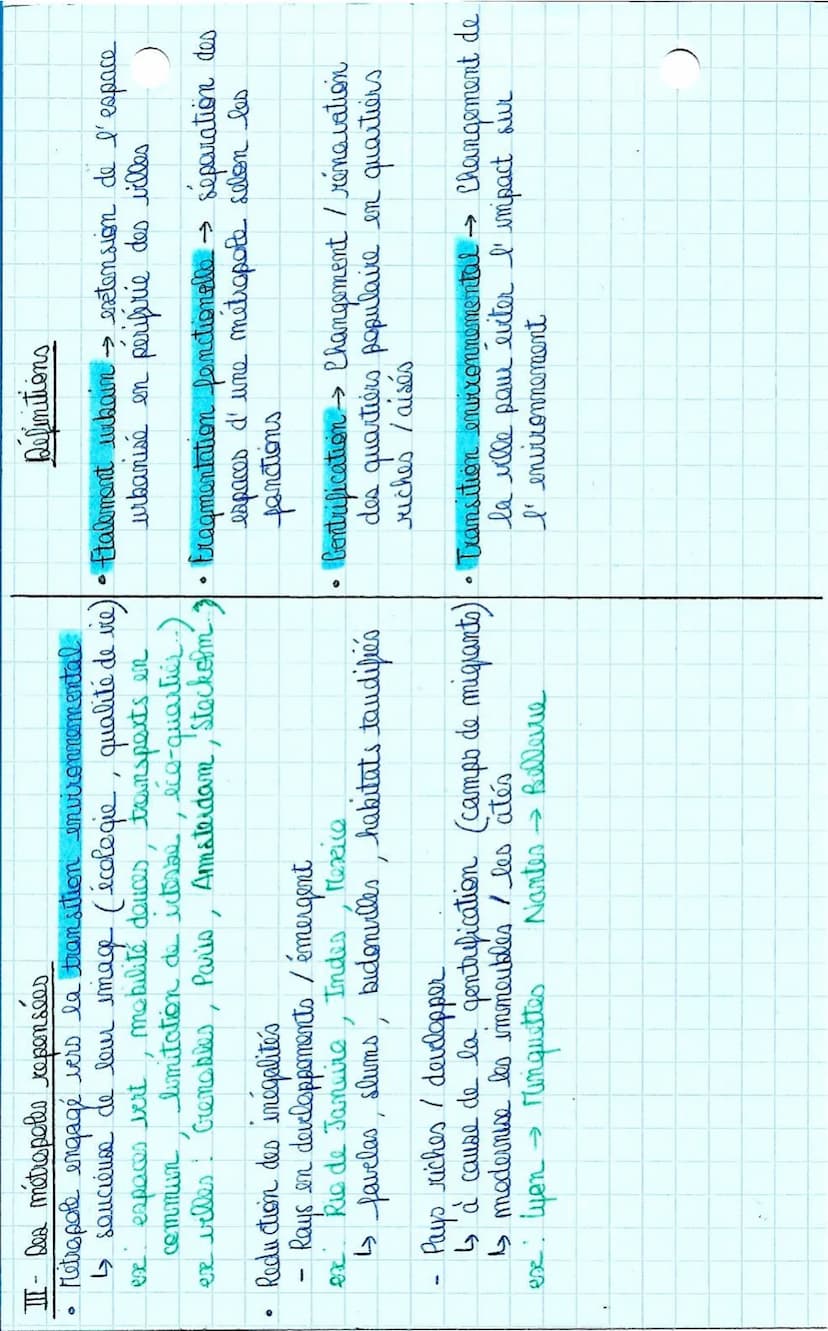 III - Des métropoles repensées
• Métropole engagé vers la transition environnemental :
↳ soucieuse de leur image (écologie, qualité de vie)
ex : espaces vert, mobilité douces, transports en
commun, limitation de vitesse, éco-quartier...)
ex villes : Grenobles, Paris, Amsterdam, Stockolm...
• Reduction des inégalités
- Pays en developpements / émergent
ex : Rio de Janaire, Indes, Mexico
↳ favelas, slums, bidonvilles, habitats taudifiés
- Pays riches / developper
↳ à cause de la gentrification (camps de migrants)
↳ modernise les immeubles / les cités
ex : Lyon → Minguettes Nantes → Bellevue
Définitions
• Etalement urbain → extension de l'espace
urbanisé en périfirie des villes
• Fragmentation fonctionelle → séparation des
espaces d'une métropole selon les
fonctions
• Gentrification → Changement / rénovation
des quartiers populaire en quartiers
riches / aisés
• Transition environnemental → Changement de
la ville pour éviter l'impact sur
l'environnement